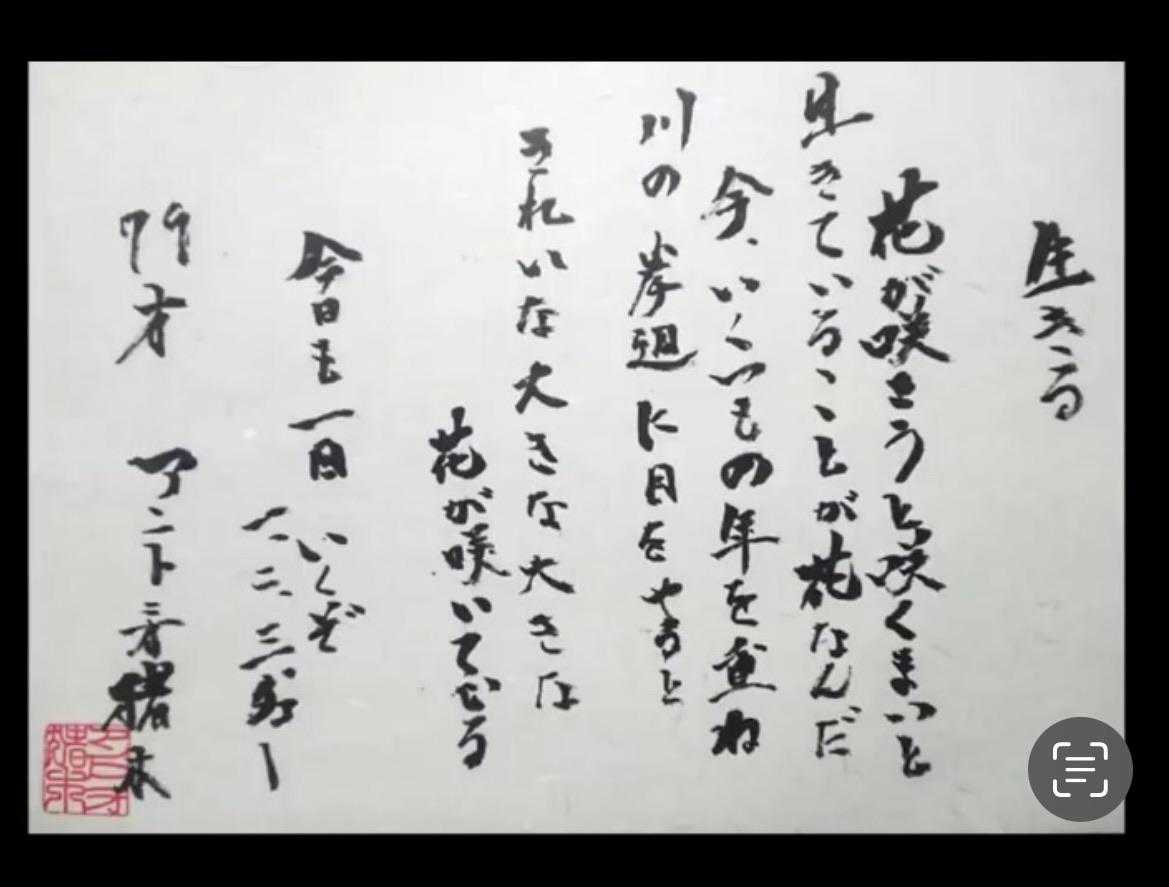 生きる
花が咲こうと咲くまいと
生きていることが花なんだ
今、いくつもの年を重ね
川の岸辺に目をやると
きれいな大きな大きな
花が咲いておる
今日も一日いくぞ
一、二、三、ダー
79才 アントニオ猪木